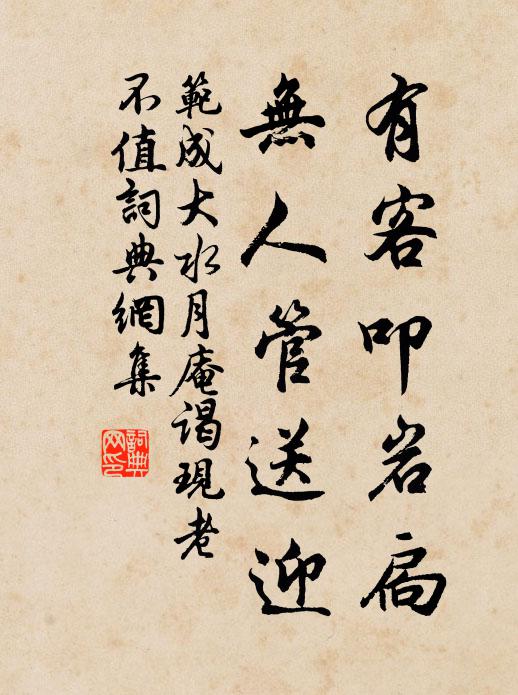 有客叩岩扃
無人管送迎
範成大水月庵謁現老
不值詞典網集
詞典网印